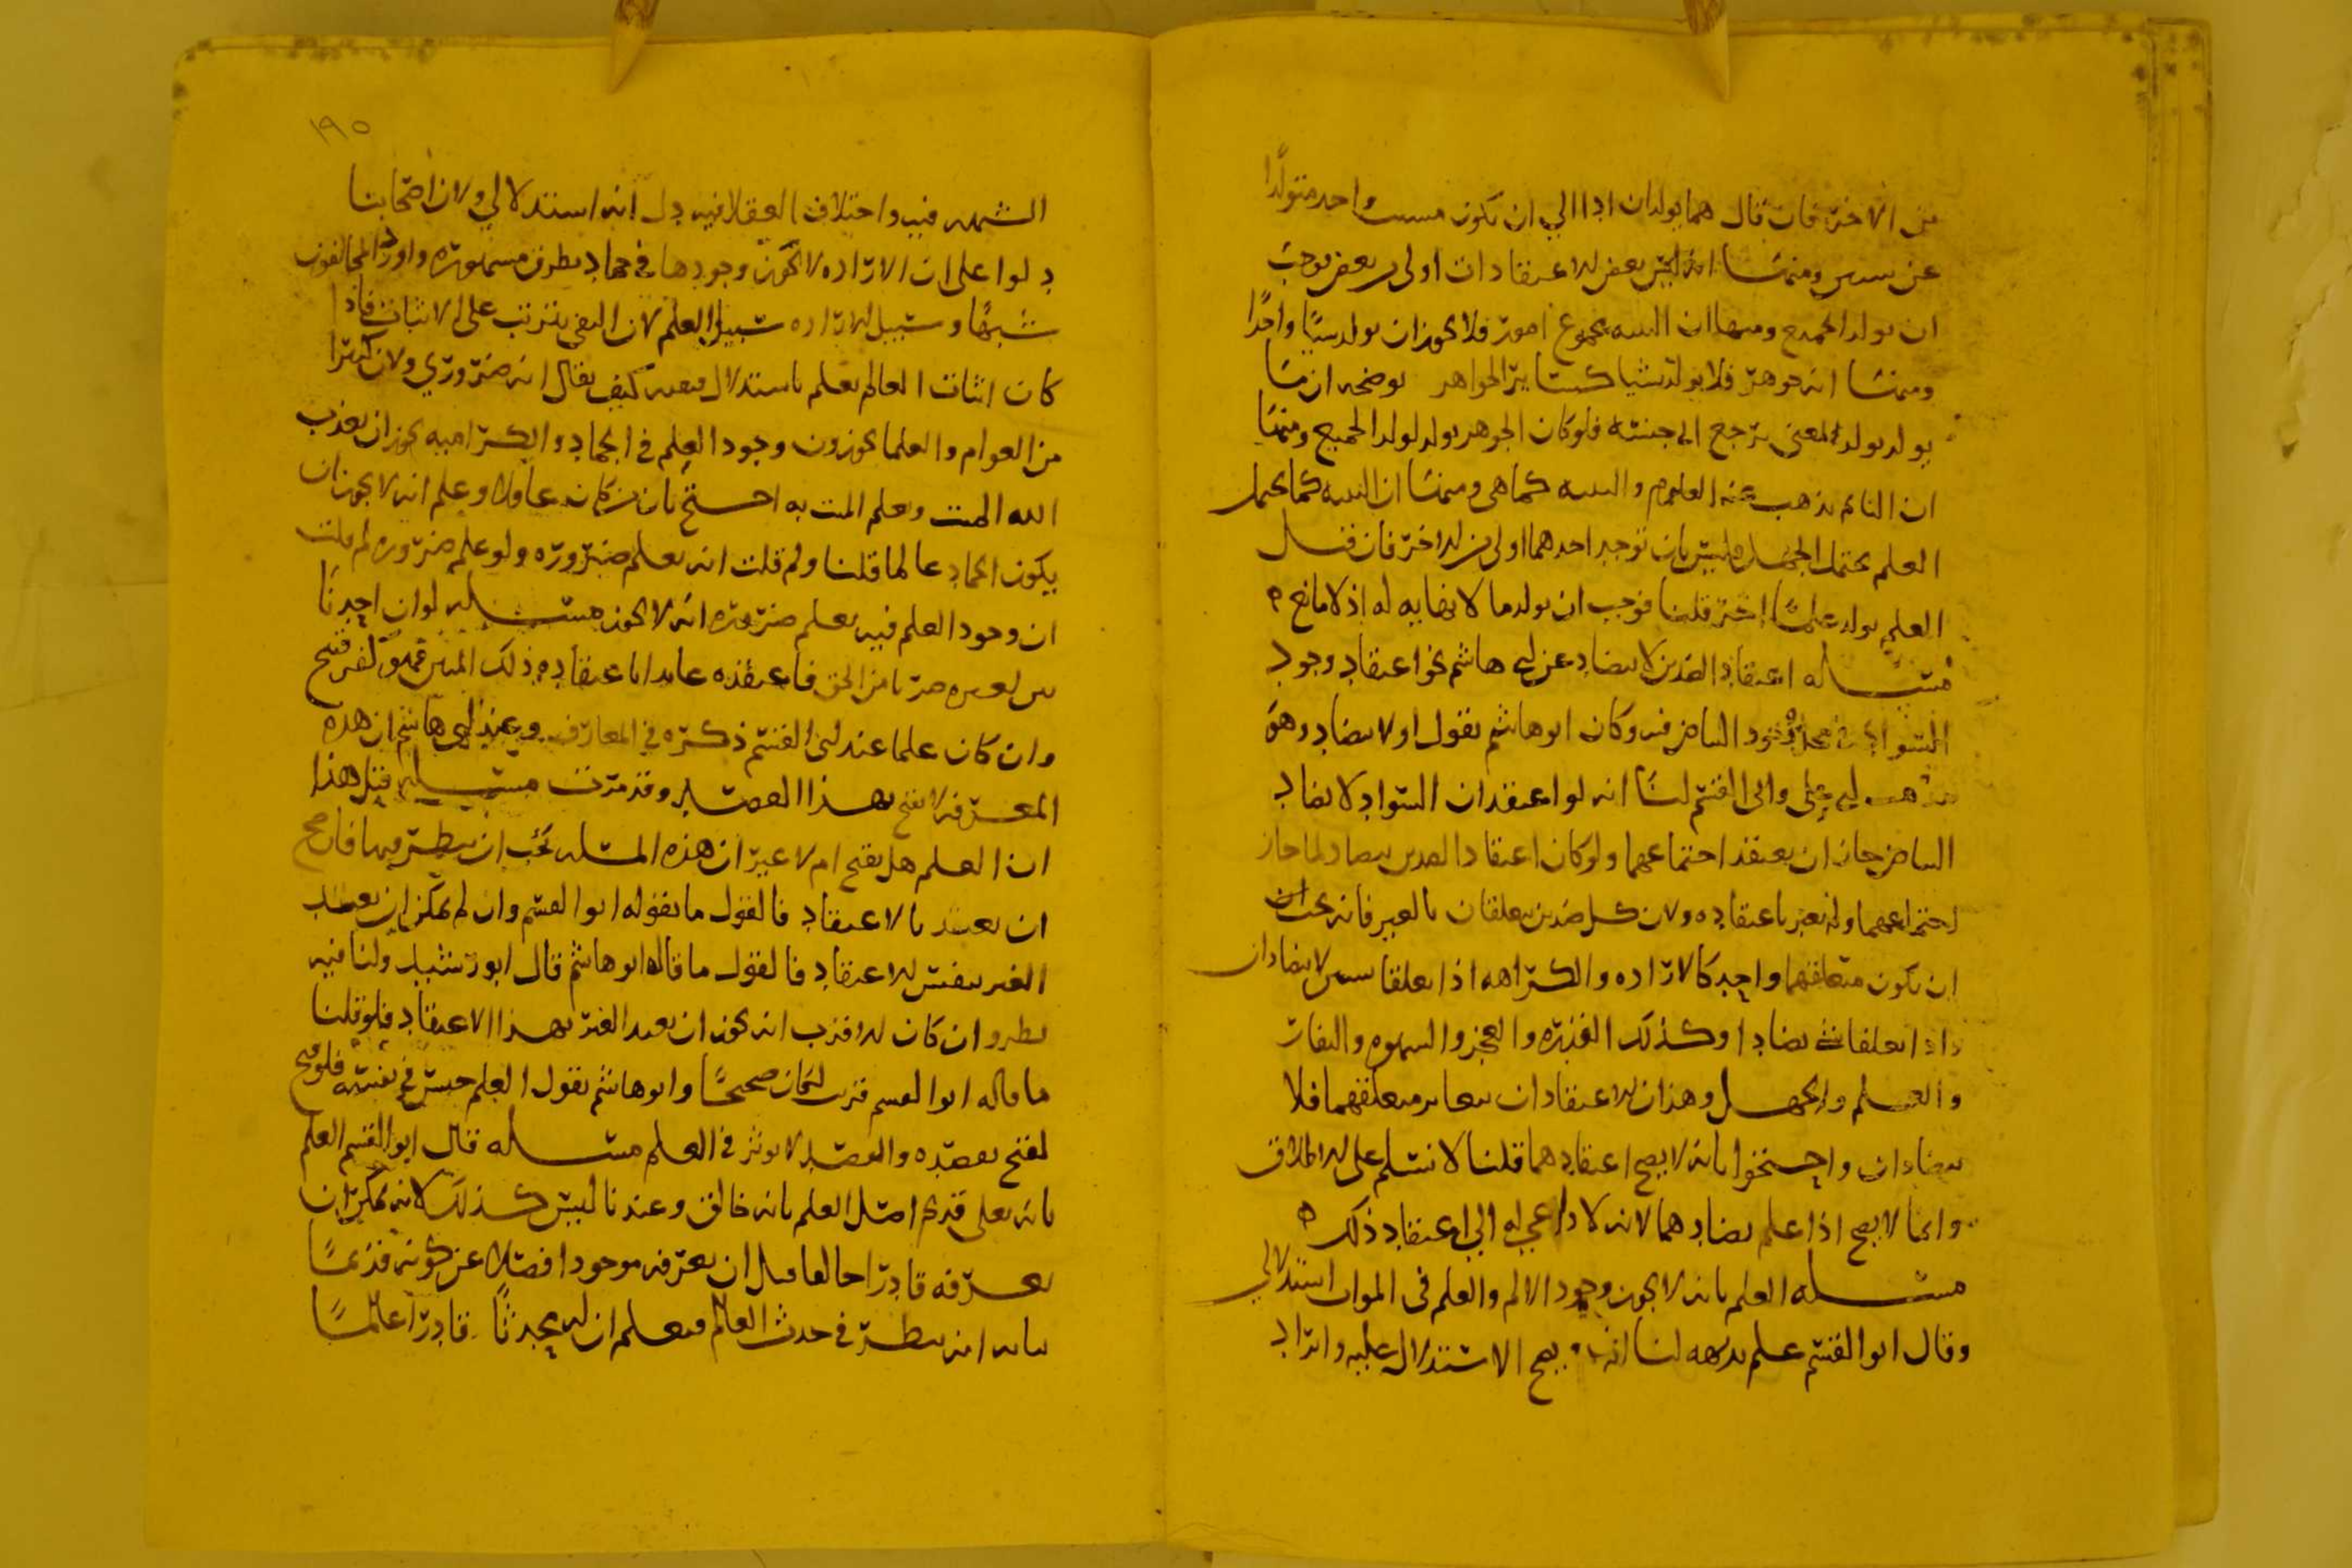 من الاخر فان قال هما يولدان ادا الي ان يكون مسبب واحد متولدا
عن سببين ومنها انه ليس بعض الاعتقادات اولى من بعض يوجب
ان يولد الجميع ومنها ان البنيه مجموع امور فلا يجوز ان يولد شيا واحدا
ومنها انه جوهر فلا يولد شيا كسائر الجواهر يوضحه ان ما
يولد يولد لمعنى يرجع الى جنسه فلو كان الجوهر يولد لولد الجميع ومنها
ان النائم يذهب عنه العلوم والبنيه كما هي ومنها ان البنيه كما يحتمل
العلم يحتمل الجهل وليس بان توجد احدهما اولى من الاخر فان قيل
العلم يولد علما اخر قلنا فوجب ان يولد ما لا نهايه له اذ لا مانع
مسله اعتقاد الضدين لا يتضاد عن ابي هاشم نحو اعتقاد وجود
السواد في محل وجود البياض فيه وكان ابو هاشم يقول اولا يتضاد وهو
مذهب ابي علي وابي القسم لنا انه لو اعتقد ان السواد لا يضاد
البياض جاز ان يعتقد اجتماعهما ولو كان اعتقاد الضدين يتضاد لما جاز
اجتماعهما ولم يعتبر باعتقاده ولان كل ضدين يتعلقان بالغير فانه يجب
ان يكون متعلقهما واحد كالاراده والكراهه اذا تعلقا بشيين لا يتضادان
واذا تعلقا بشي تضادا وكذلك القدره والعجز والشهوه والنفار
والعلم والجهل وهذان الاعتقادان يتغاير متعلقهما فلا
يتضادان واحتجوا بانه لا يصح اعتقادهما قلنا لا نسلم على الاطلاق
وانما لا يصح اذا علم تضادهما لانه لا داعي له الي اعتقاد ذلك
مسله العلم بانه لا يجوز وجود الالم والعلم في الموات استدلالي
وقال ابو القسم علم بديهه لنا انه يصح الاستدلال عليه وايراد
١٩٥
الشبهه فيه واختلاف العقلا فيه دل انه استدلالي ولان اصحابنا
دلوا على ان الاراده لا يجوز وجودها في جماد بطرق مشهوره واورد المخالفون
شبها وسبيل الاراده سبيل العلم لان النفي يترتب على الاثبات فاذا
كان اثبات العالم يعلم باستدلال فنفيه كيف يقال انه ضروري ولان كثيرا
من العوام والعلما يجوزون وجود العلم في الجماد والكراميه يجوز ان يعذب
الله الميت ويعلم الميت به احتج بان من كان عاقلا وعلم انه لا يجوز ان
يكون الجماد عالما قلنا ولم قلت انه يعلم ضروره ولو علم ضروره لم قلت
ان وجود العلم فيه يعلم ضروره انه لا يجوز مسله لو ان احدنا
بين لغيره ضربا من الحق فاعتقده عامدا باعتقاده ذلك المبين فهو كفر قبيح
وان كان علما عند ابي القسم ذكره في المعارف وعند ابي هاشم ان هذه
المعرفه لا تقبح بهذا القصد وقد مرت مسله قبل هذا
ان العلم هل يقبح ام لا غير ان هذه المسله يجب ان ينظر فيها فان صح
ان يعتمد بالاعتقاد فالقول ما يقوله ابو القسم وان لم يمكن ان يعتمد
الغير بنفس الاعتقاد فالقول ما قاله ابو هاشم قال ابو رشيد ولنا فيه
نظر وان كان الاقرب انه يجوز ان يعمد الغير بهذا الاعتقاد فلو قلنا
ما قاله ابو القسم قرب لكان صحيحا وابو هاشم يقول العلم حسن في نفسه فلو قبح
لقبح بقصده والقصد لا يوثر في العلم مسله قال ابو القسم العلم
بانه تعلى قديم اصل العلم بانه خالق وعندنا ليس كذلك لانه يمكن ان
يعرفه قادرا حالقا قبل ان يعرفه موجودا فضلا عن كونه قديما
بيانه انه ينظر في حدث العالم فيعلم ان له محدثا قادرا عالما